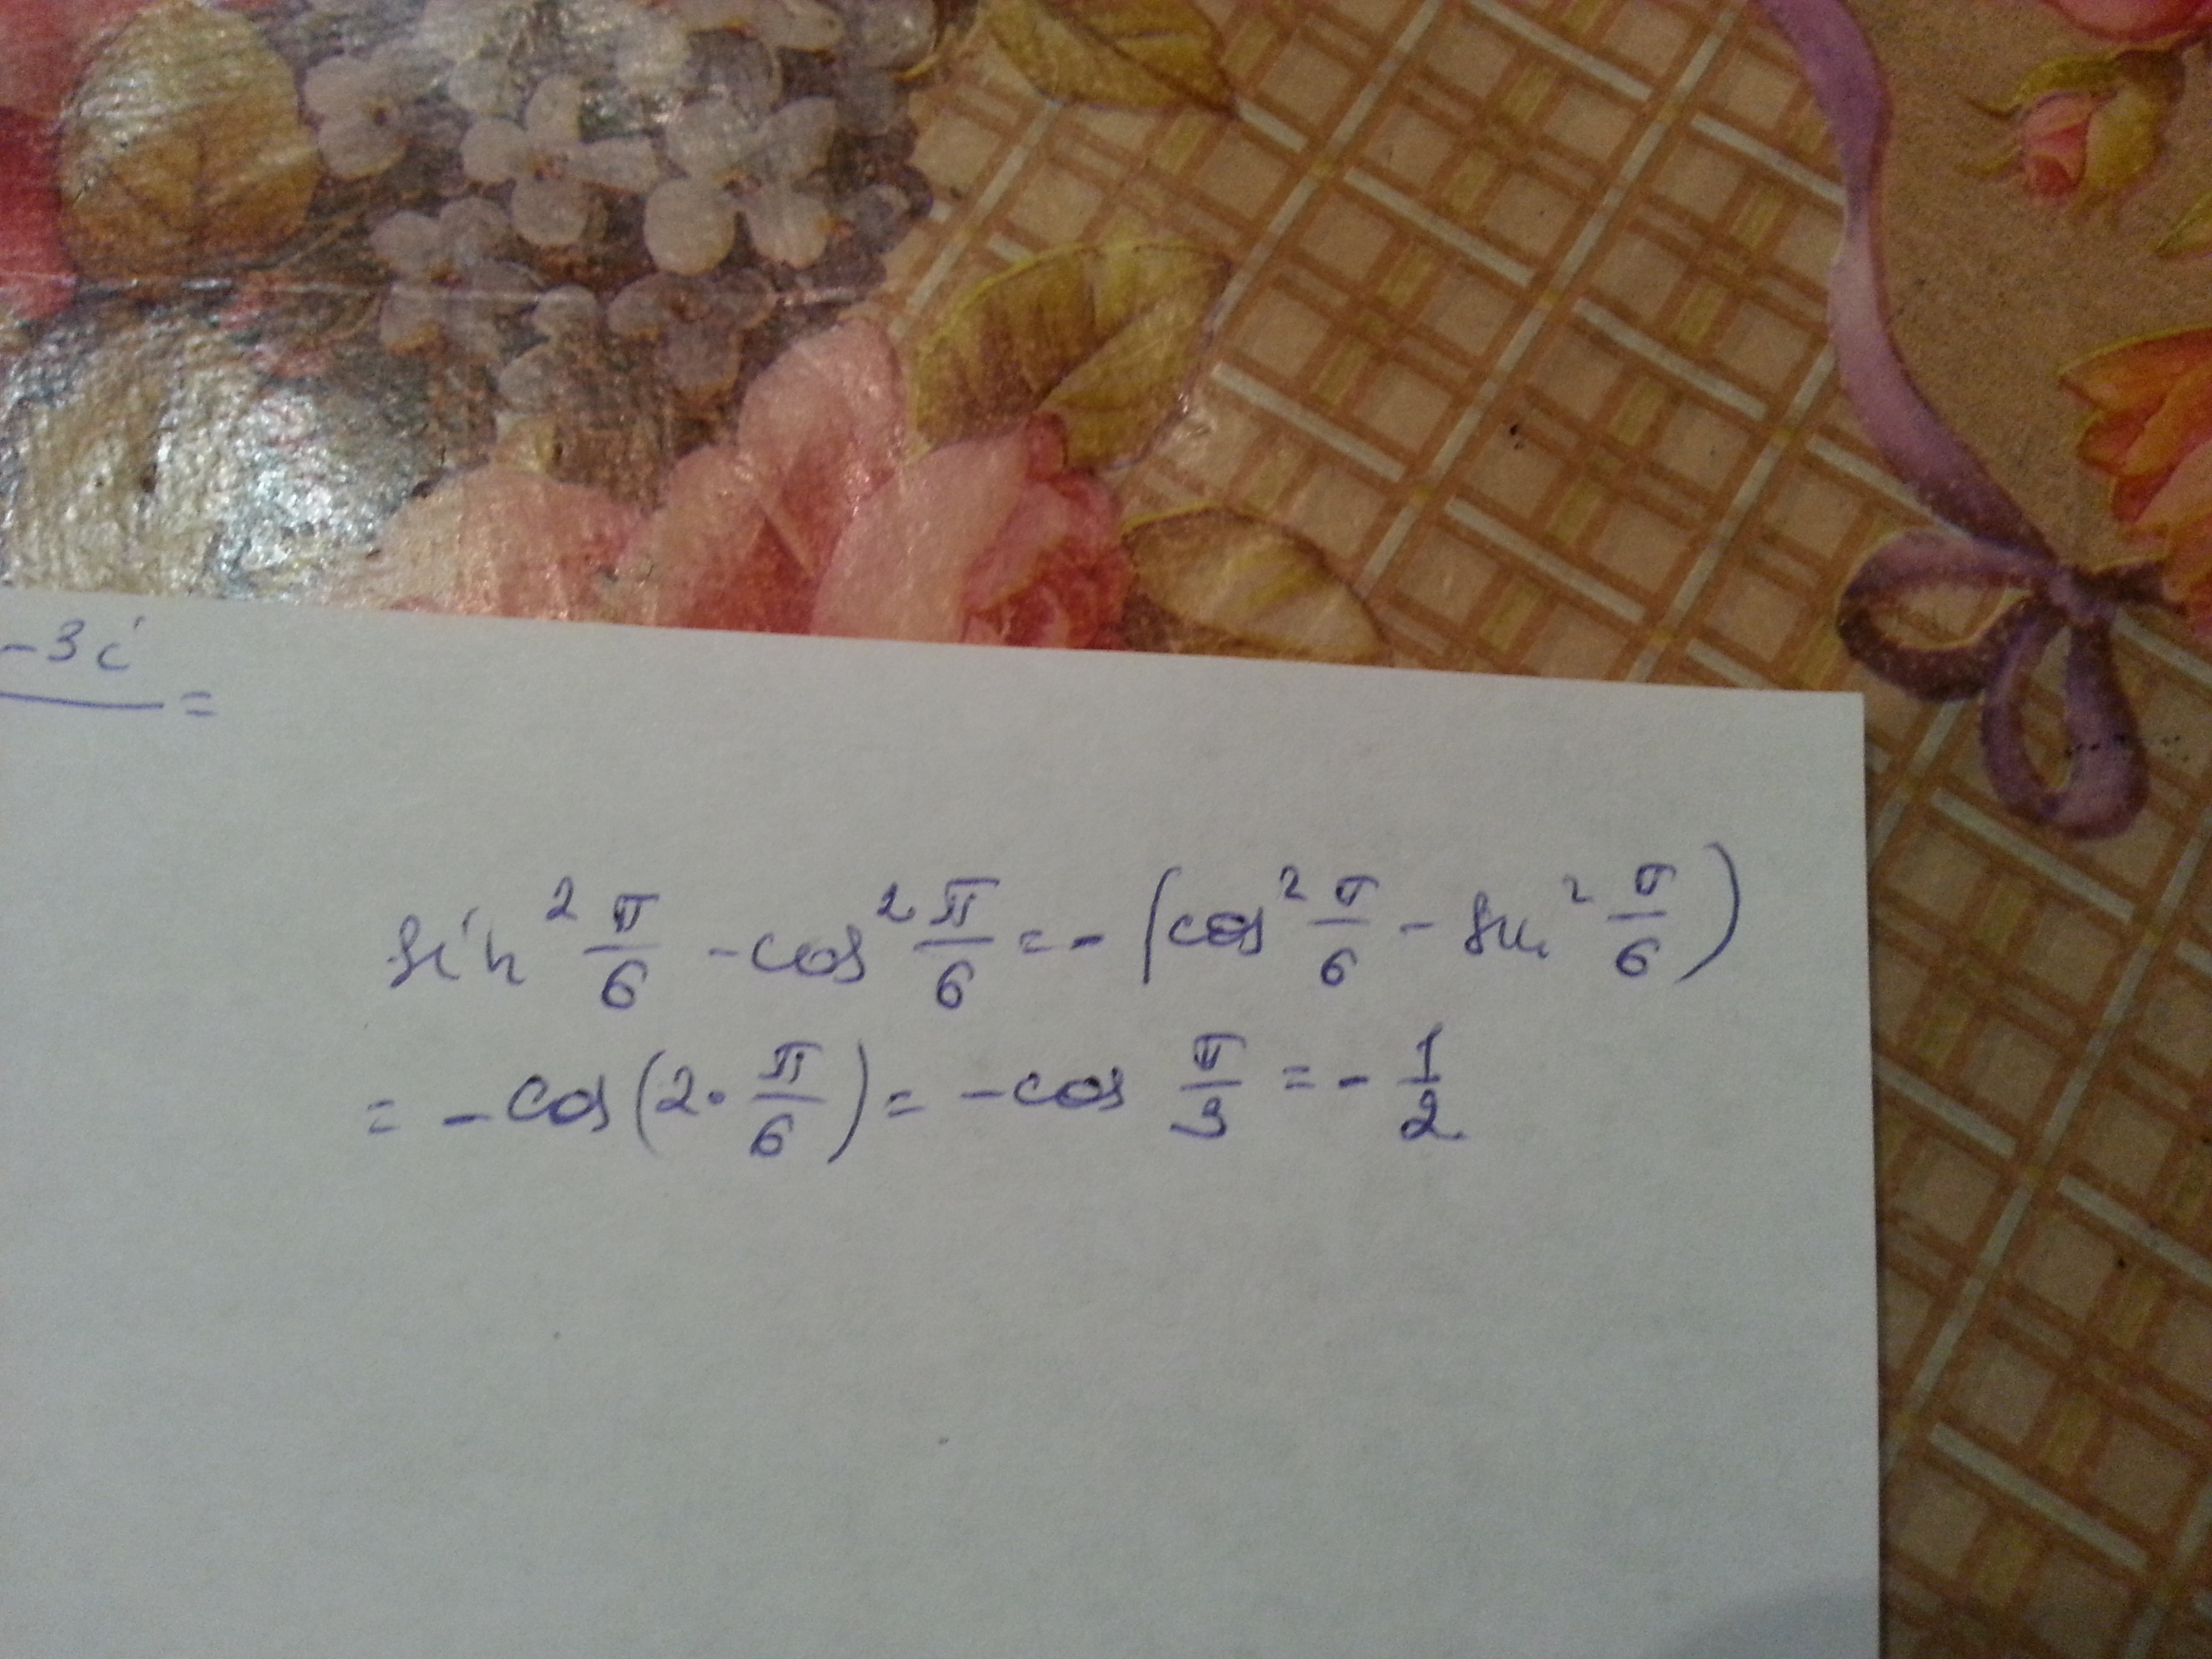 -3i
=
sin² π/6 - cos² π/6 = - (cos² π/6 - sin² π/6)
= - cos(2· π/6) = - cos π/3 = - 1/2